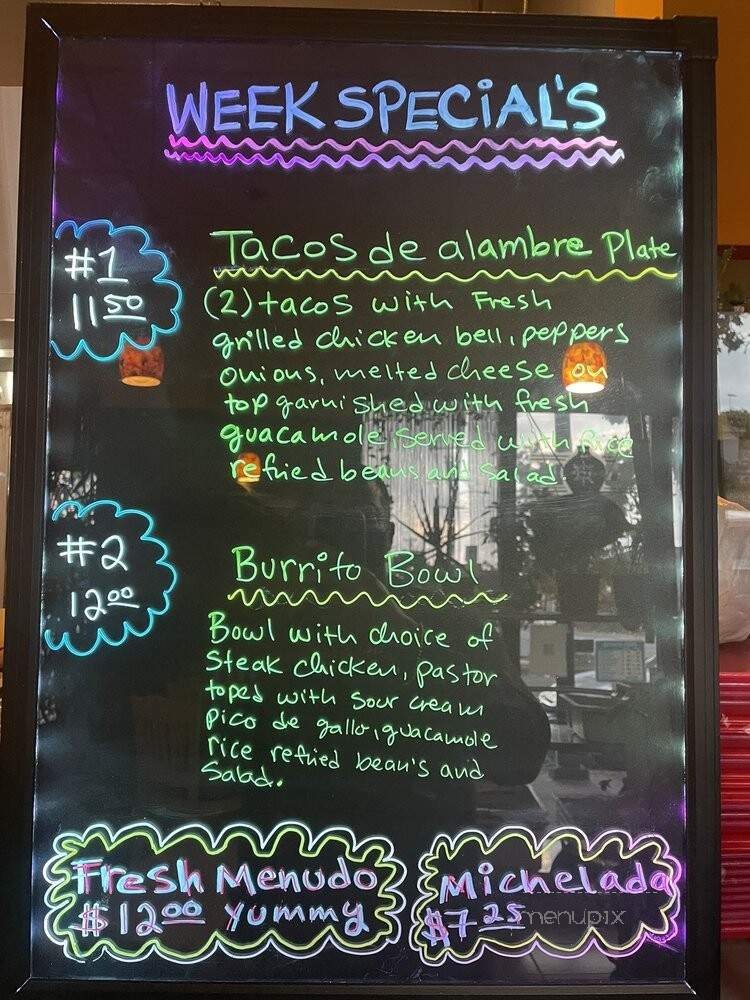 WEEK SPECiAL'S
#1
11 50
Tacos de alambre Plate
(2) tacos with Fresh
grilled chicken bell, peppers
onions, melted cheese on
top garnished with fresh
guacamole served with rice
refried beans and salad.
#2
12 00
Burrito Bowl
Bowl with choice of
Steak chicken, pastor
toped with sour cream
pico de gallo, guacamole
rice refried bean's and
Salad.
Fresh Menudo
$12 00 yummy
Michelada
$7 25
menupix